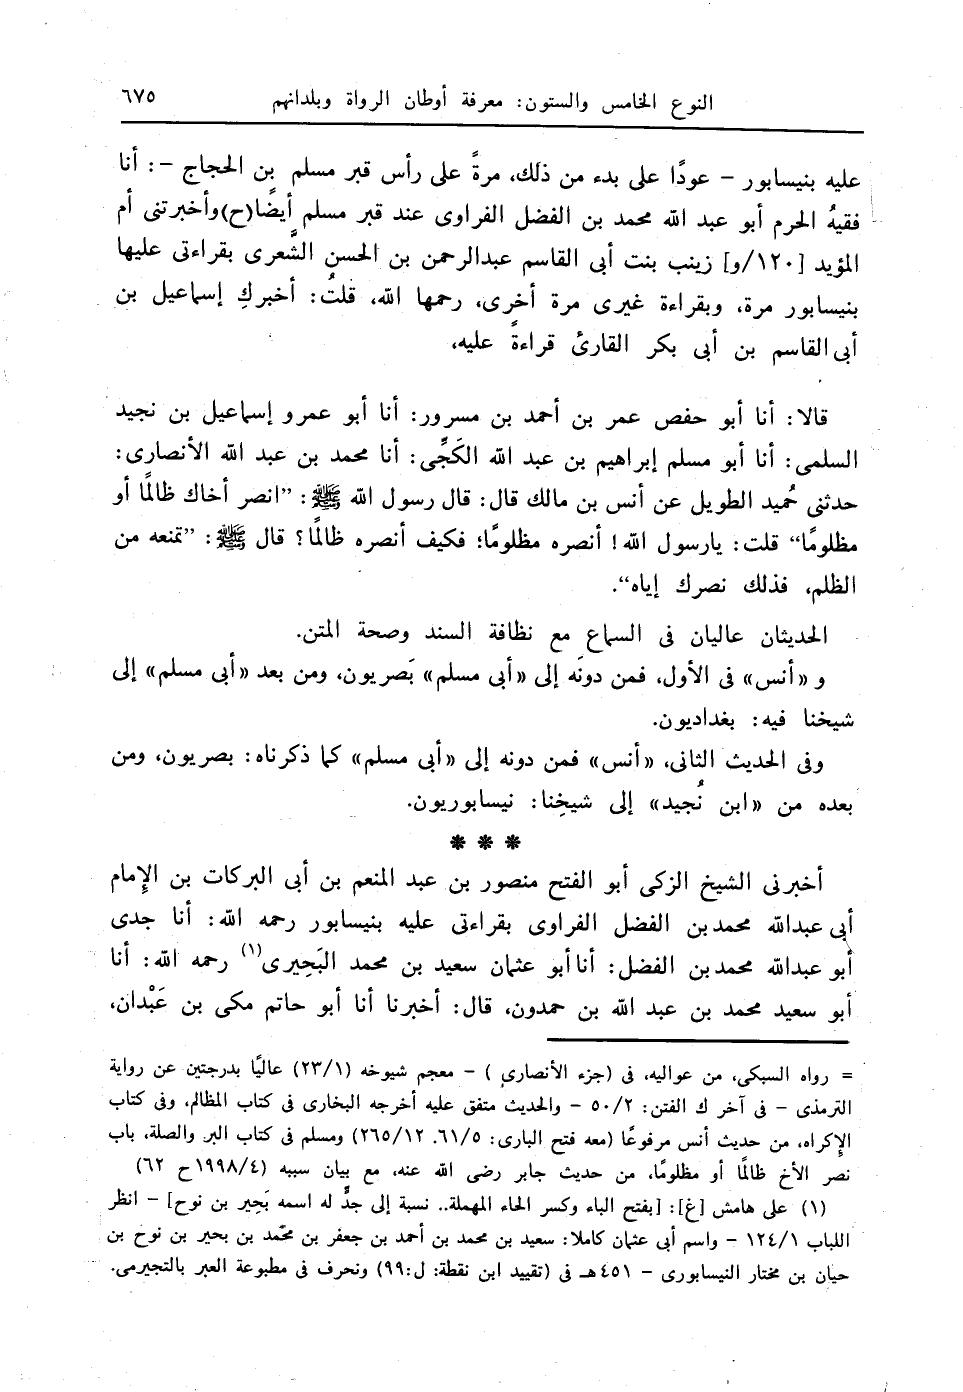 النوع الخامس والستون: معرفة أوطان الرواة وبلدانهم ٦٧٥
عليه بنيسابور - عودًا على بدء من ذلك، مرةً على رأس قبر مسلم بن الحجاج -: أنا
فقيهُ الحرم أبو عبد الله محمد بن الفضل الفراوى عند قبر مسلم أيضًا(ح)وأخبرتنى أم
المؤيد [١٢٠/و] زينب بنت أبى القاسم عبدالرحمن بن الحسن الشَّعرى بقراءتى عليها
بنيسابور مرة، وبقراءة غيرى مرة أخرى، رحمها الله، قلتُ: أخبركِ إسماعيل بن
أبى القاسم بن أبى بكر القارئ قراءةً عليه،
قالا: أنا أبو حفص عمر بن أحمد بن مسرور: أنا أبو عمرو إسماعيل بن نجيد
السلمى: أنا أبو مسلم إبراهيم بن عبد الله الكَجِّى: أنا محمد بن عبد الله الأنصارى:
حدثنى حُميد الطويل عن أنس بن مالك قال: قال رسول الله ﷺ: ”انصر أخاك ظالمًا أو
مظلومًا“ قلت: يارسول الله! أنصره مظلومًا؛ فكيف أنصره ظالمًا؟ قال ﷺ: ”تمنعه من
الظلم، فذلك نصرك إياه“.
الحديثان عاليان فى السماع مع نظافة السند وصحة المتن.
و «أنس» فى الأول، فمن دونَه إلى «أبى مسلم» بَصريون، ومن بعد «أبى مسلم» إلى
شيخنا فيه: بغداديون.
وفى الحديث الثانى، «أنس» فمن دونه إلى «أبى مسلم» كما ذكرناه: بصريون، ومن
بعده من «ابن نُجيد» إلى شيخِنا: نيسابوريون.
* * *
أخبرنى الشيخ الزكى أبو الفتح منصور بن عبد المنعم بن أبى البركات بن الإمام
أبى عبدالله محمدبن الفضل الفراوى بقراءتى عليه بنيسابور رحمه الله: أنا جدى
أبو عبدالله محمدبن الفضل: أنا أبو عثمان سعيد بن محمد البَحِيرى(١) رحمه الله: أنا
أبو سعيد محمد بن عبد الله بن حمدون، قال: أخبرنا أنا أبو حاتم مكى بن عَبْدان،
= رواه السبكى، من عواليه، فى (جزء الأنصارى) - معجم شيوخه (٢٣/١) عاليًا بدرجتين عن رواية
الترمذى - فى آخر ك الفتن: ٥٠/٢ - والحديث متفق عليه أخرجه البخارى فى كتاب المظالم، وفى كتاب
الإكراه، من حديث أنس مرفوعًا (معه فتح البارى: ٦١/٥. ٢٦٥/١٢) ومسلم فى كتاب البر والصلة، باب
نصر الأخ ظالمًا أو مظلومًا، من حديث جابر رضى الله عنه، مع بيان سببه (١٩٩٨/٤ح ٦٢)
(١) على هامش [غ]: [بفتح الباء وكسر الحاء المهملة.. نسبة إلى جدٍّ له اسمه بَحِير بن نوح] - انظر
اللباب ١٢٤/١ - واسم أبى عثمان كاملا: سعيد بن محمد بن أحمد بن جعفر بن محمد بن بحير بن نوح بن
حيان بن مختار النيسابورى - ٤٥١هـ فى (تقييد ابن نقطة: ل:٩٩) ونحرف فى مطبوعة العبر بالتجيرمى.